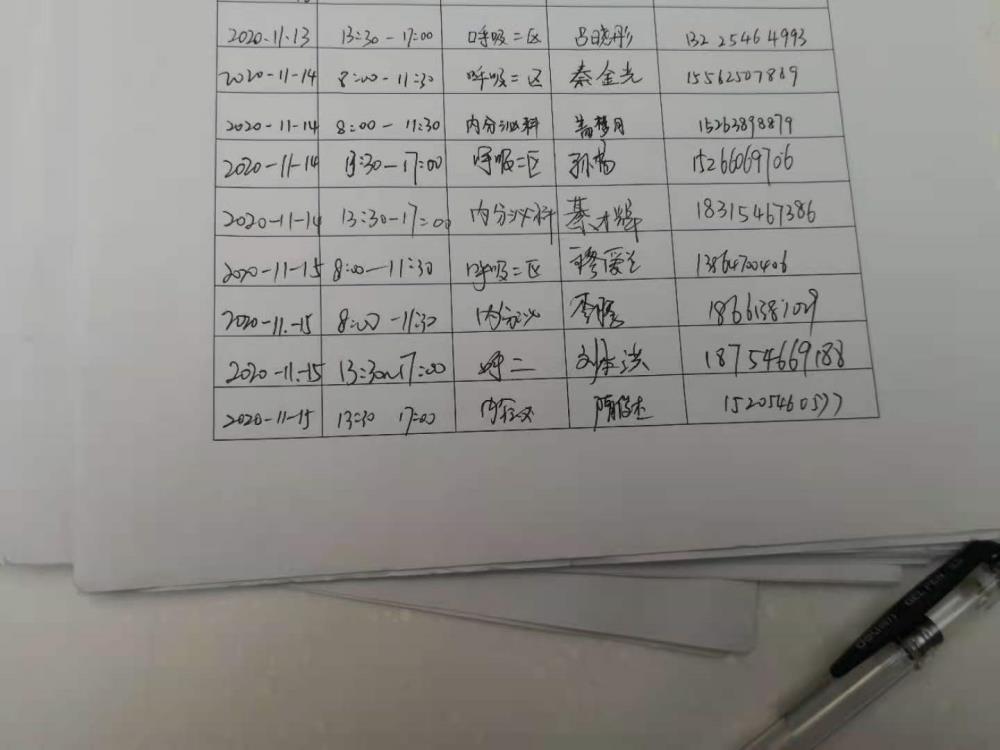 2020.11.13 13:30-17:00 呼吸二区 吕晓彤 13225464993
2020-11-14 8:00-11:30 呼吸二区 秦金光 15562507869
2020-11-14 8:00-11:30 内分泌科 15263898879
2020-11-14 13:30-17:00 呼吸二区 孙杨 15266069706
2020-11-14 13:30-17:00 内分泌科 綦才辉 18315467386
2020-11-15 8:00-11:30 呼吸二区 穆爱兰 13864700406
2020-11.-15 8:00-11:30 内分泌 李
2020-11.-15 13:30~17:00 呼二 刘本洪 18754669188
2020-11-15 13:30 17:00 内分泌 隋俊杰 15205460577
DELIXIN GEL PEN